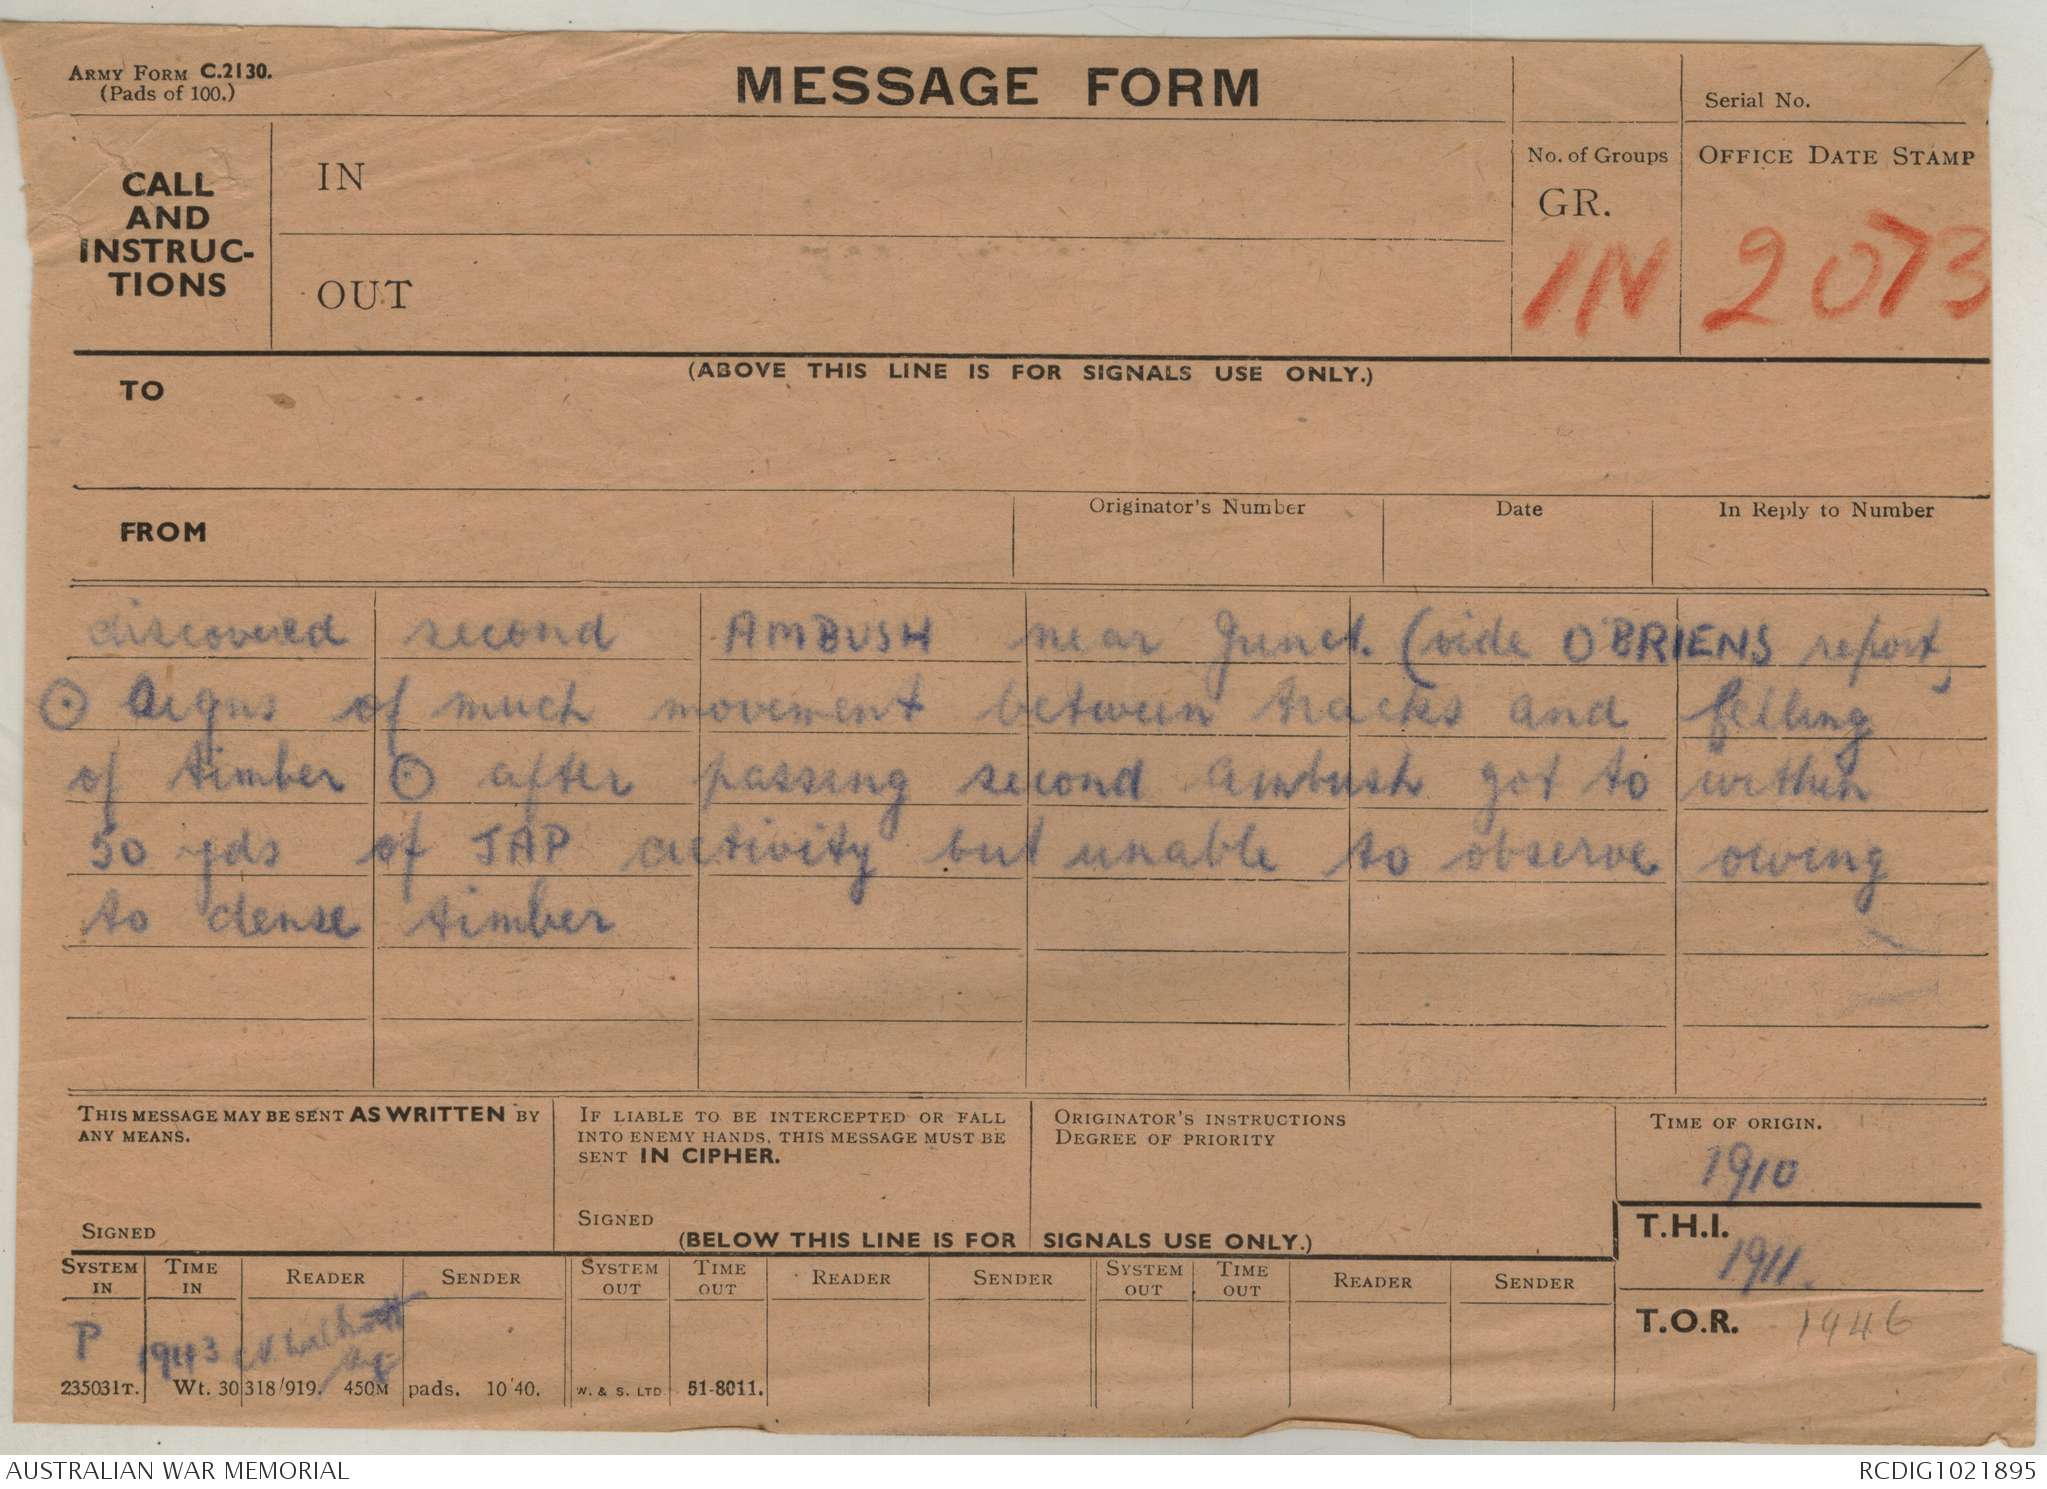 ARMY FORM C.2130.
(Pads of 100.)
MESSAGE FORM
Serial No.
CALL
AND
INSTRUC-
TIONS
IN
OUT
No. of Groups
GR.
OFFICE DATE STAMP
IN 2073
(ABOVE THIS LINE IS FOR SIGNALS USE ONLY.)
TO
FROM
Originator's Number
Date
In Reply to Number
discovered second AMBUSH near Junct. (vide O'BRIENS report)
⊙ Signs of much movement between tracks and felling
of timber ⊙ after passing second ambush got to within
50 yds of JAP activity but unable to observe owing
to dense timber
THIS MESSAGE MAY BE SENT AS WRITTEN BY
ANY MEANS.
SIGNED
IF LIABLE TO BE INTERCEPTED OR FALL
INTO ENEMY HANDS, THIS MESSAGE MUST BE
SENT IN CIPHER.
SIGNED
ORIGINATOR'S INSTRUCTIONS
DEGREE OF PRIORITY
TIME OF ORIGIN.
1910
T.H.I.
1911.
T.O.R. 1946
(BELOW THIS LINE IS FOR SIGNALS USE ONLY.)
SYSTEM IN
TIME IN
READER
SENDER
SYSTEM OUT
TIME OUT
READER
SENDER
SYSTEM OUT
TIME OUT
READER
SENDER
P 1943
235031T. Wt. 30318/919. 450M pads. 10'40. W. & S. LTD 51-8011.
AUSTRALIAN WAR MEMORIAL
RCDIG1021895